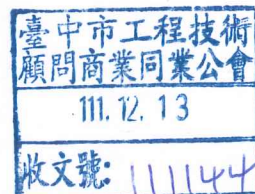 臺中市工程技術
顧問商業同業公會
111.12.13
收文號: 111144